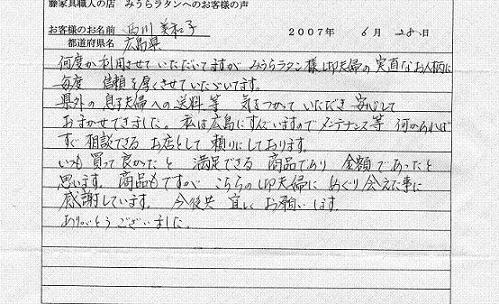 籐家具職人の店 みうらラタンへのお客様の声
お客様のお名前 西川 美和子 2007年 6月 28日
都道府県名 広島県
何度か利用させていただいてますが みうらラタン様ご夫婦の実直なお人柄に
毎度 信頼を厚くさせていただいてます。
県外の息子夫婦への送料等 気をつかっていただき 安心して
おまかせできました。私は広島にすんでいますのでメンテナンス等 何かあれば
すぐ相談できるお店として 頼りにしております。
いつも買って良かったと 満足できる 商品であり 金額であったと
思います。商品もですが こちらのご夫婦に めぐり会えた事に
感謝しています。 今後共 宜しく お願いします
ありがとうございました。